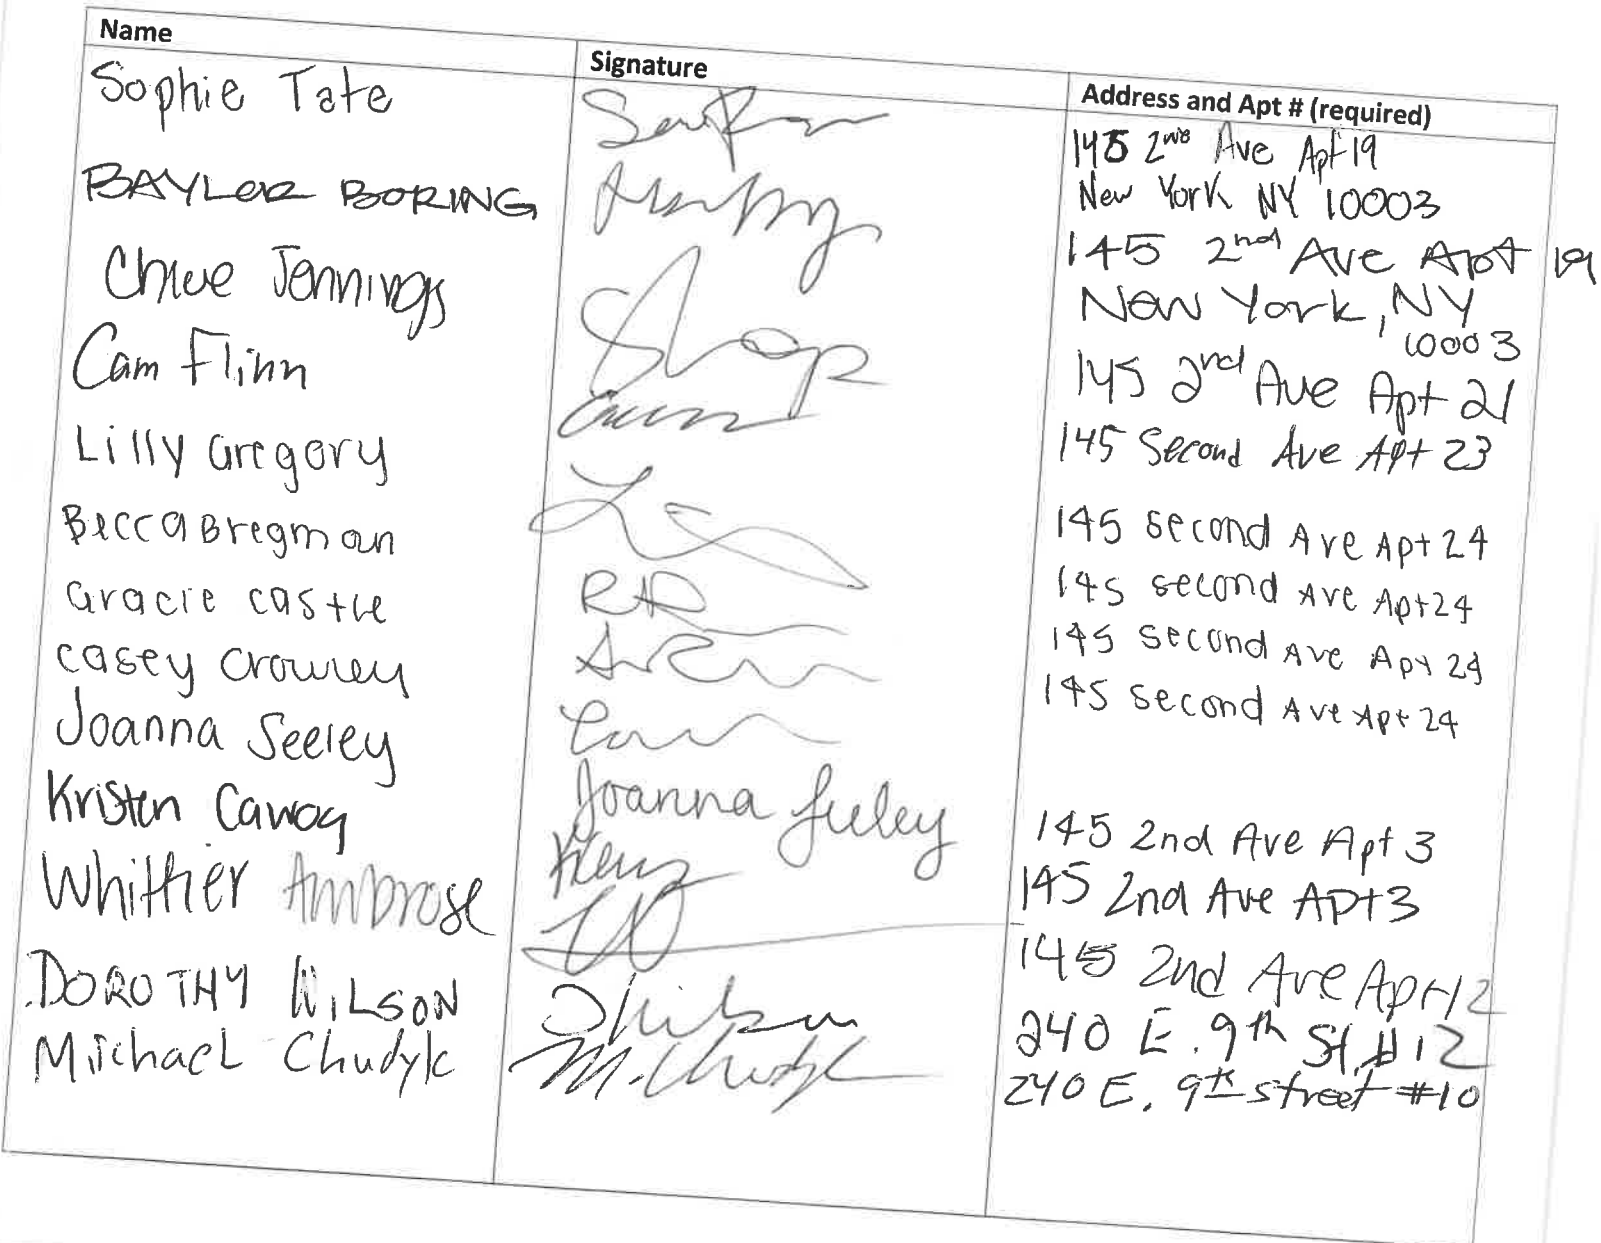 Name Signature Address and Apt # (required)
Sophie Tate 145 2nd Ave Apt 19
New York NY 10003
BAYLOR BORING 145 2nd Ave Apt 19
New York, NY
10003
Chloe Jennings 145 2nd Ave Apt 21
Cam Flinn 145 Second Ave Apt 23
Lilly Gregory 145 second Ave Apt 24
Becca Bregman 145 second Ave Apt 24
Gracie Castle 145 second Ave Apt 24
Casey Crowley 145 second Ave Apt 24
Joanna Seeley Joanna Seeley 145 2nd Ave Apt 3
Kristen 145 2nd Ave Apt 3
Whittier Ambrose 145 2nd Ave Apt 12
DOROTHY WILSON 240 E. 9th St. #12
Michael Chudyk M. Chudyk 240 E. 9th street #10